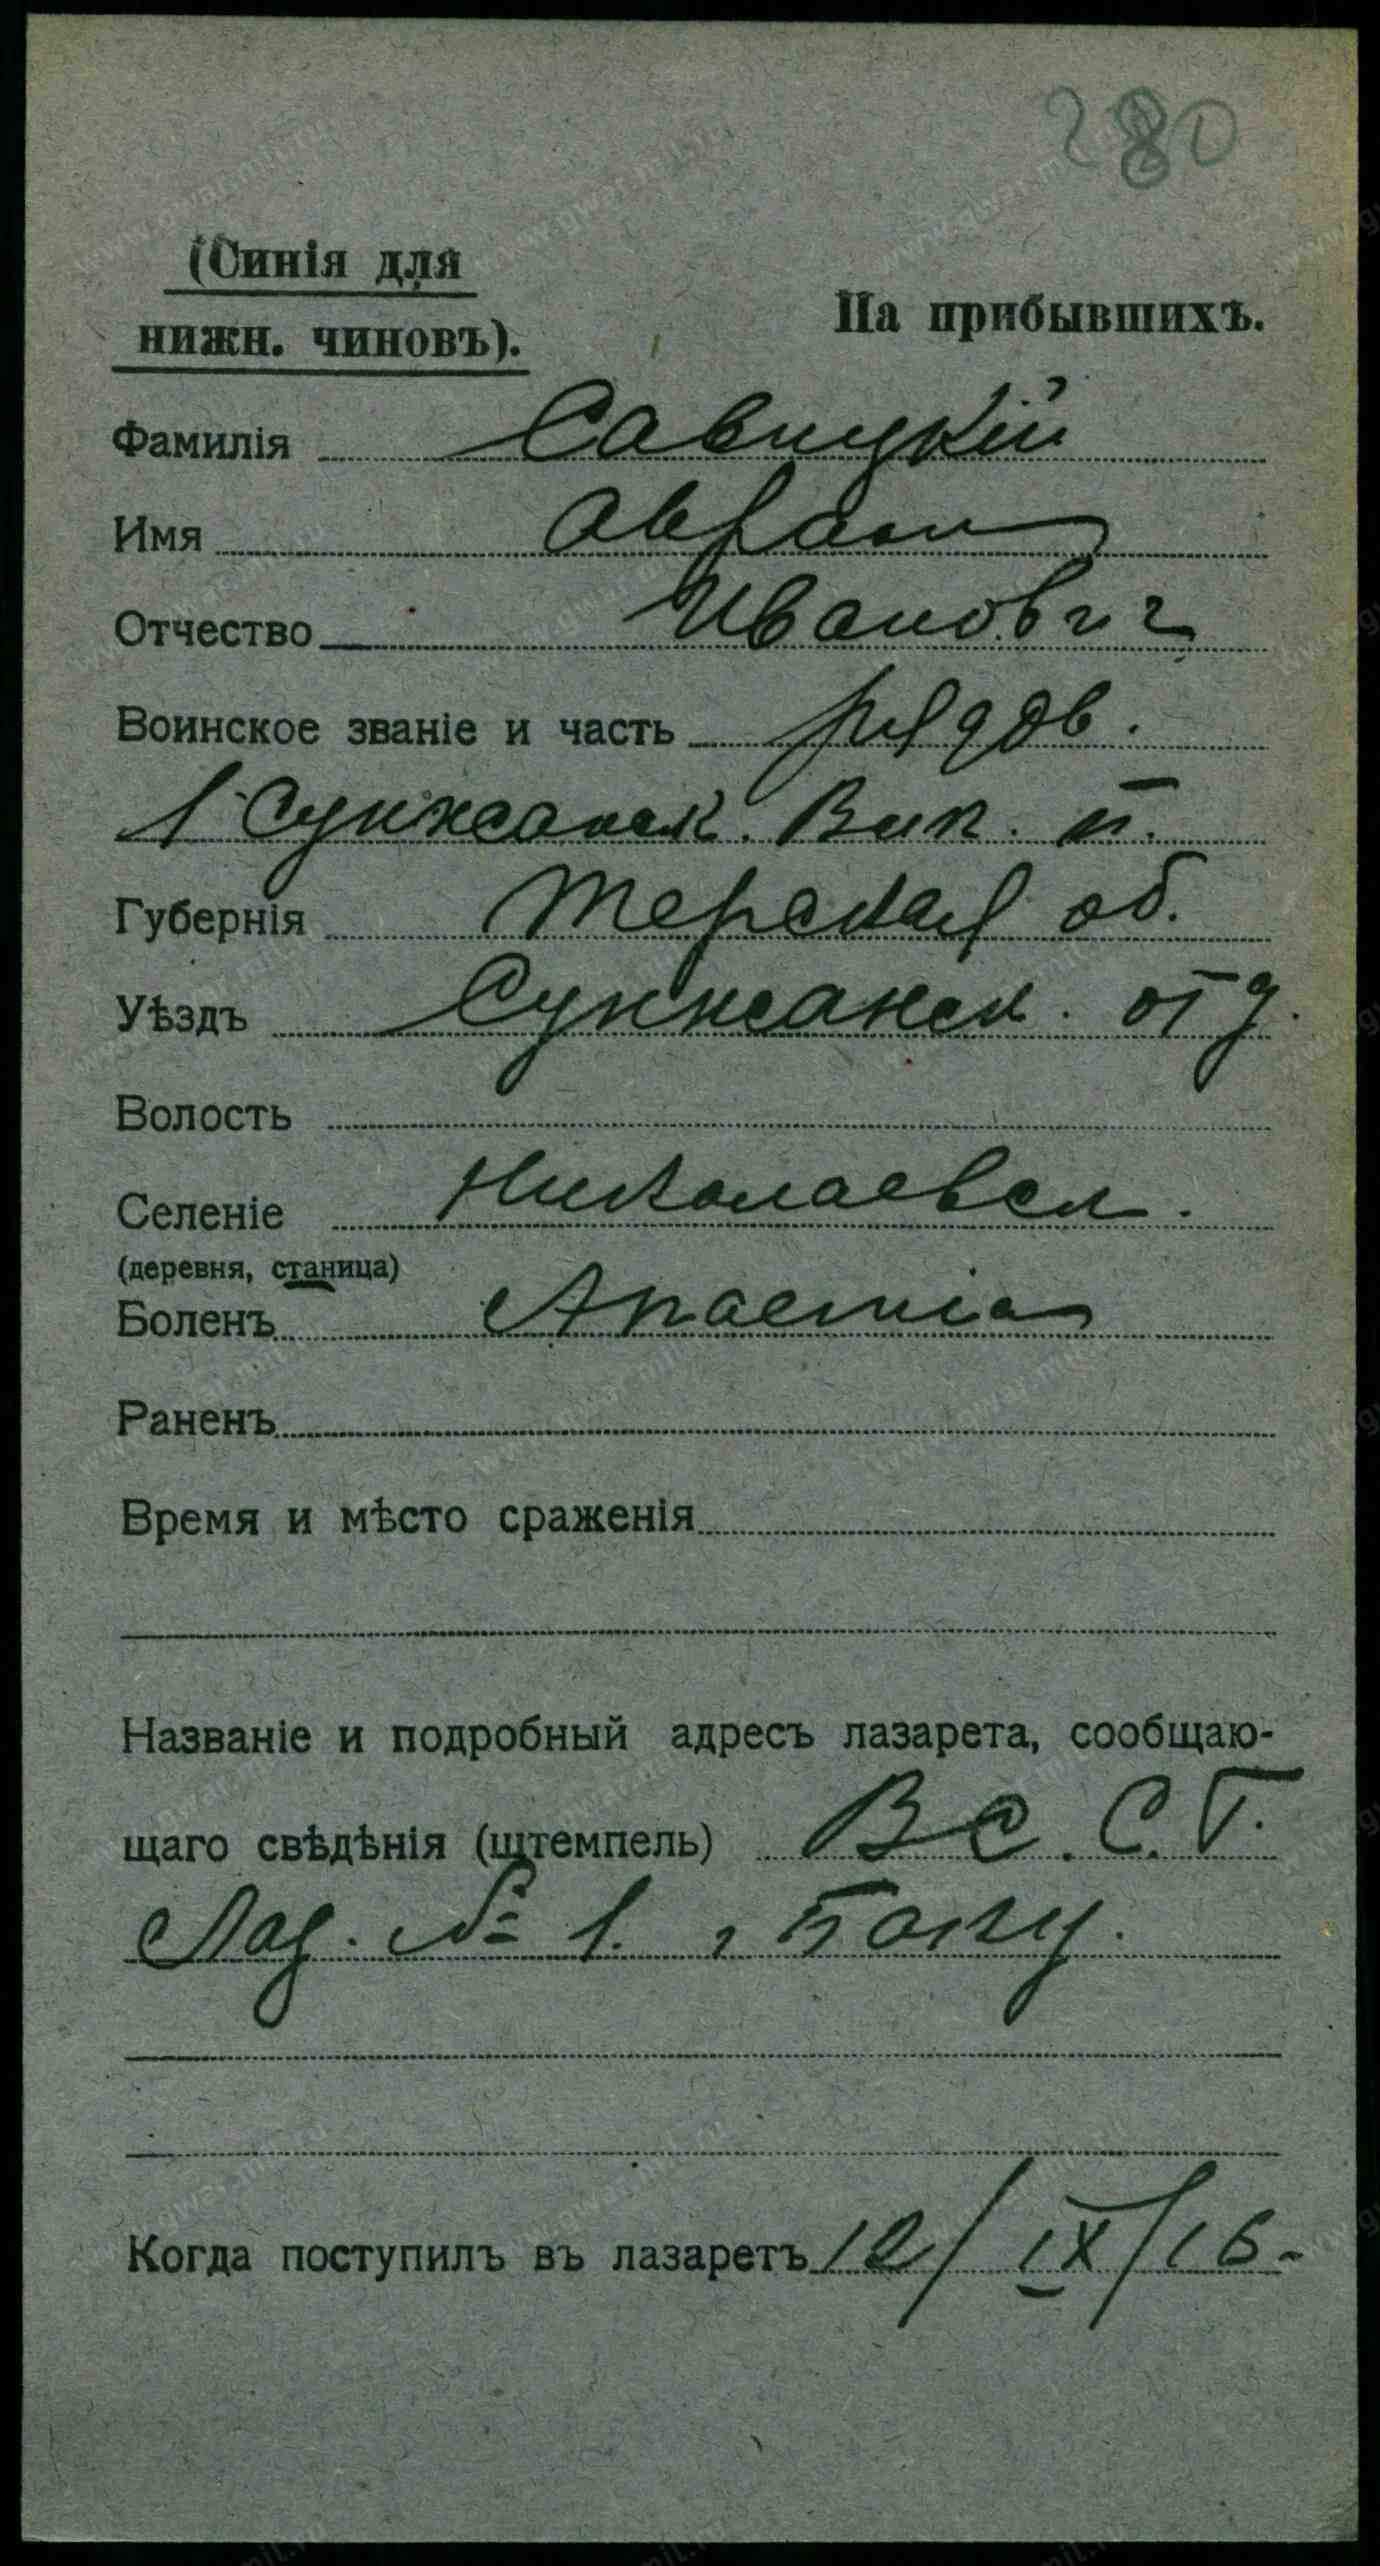 280
(Синія для
нижн. чиновъ).
На прибывшихъ.
Фамилія Савицкій
Имя Аврам
Отчество Иванович
Воинское званіе и часть рядов.
1 Сунженск. Вик. п.
Губернія Терская об.
Уѣздъ Сунженск. отд.
Волость
Селеніе Николаевск.
(деревня, станица)
Боленъ Anaemia
Раненъ
Время и мѣсто сраженія
Названіе и подробный адресъ лазарета, сообщаю-
щаго свѣдѣнія (штемпель) В С. С. Г.
Лаз. № 1. Баку.
Когда поступилъ въ лазаретъ 12/IX/16.